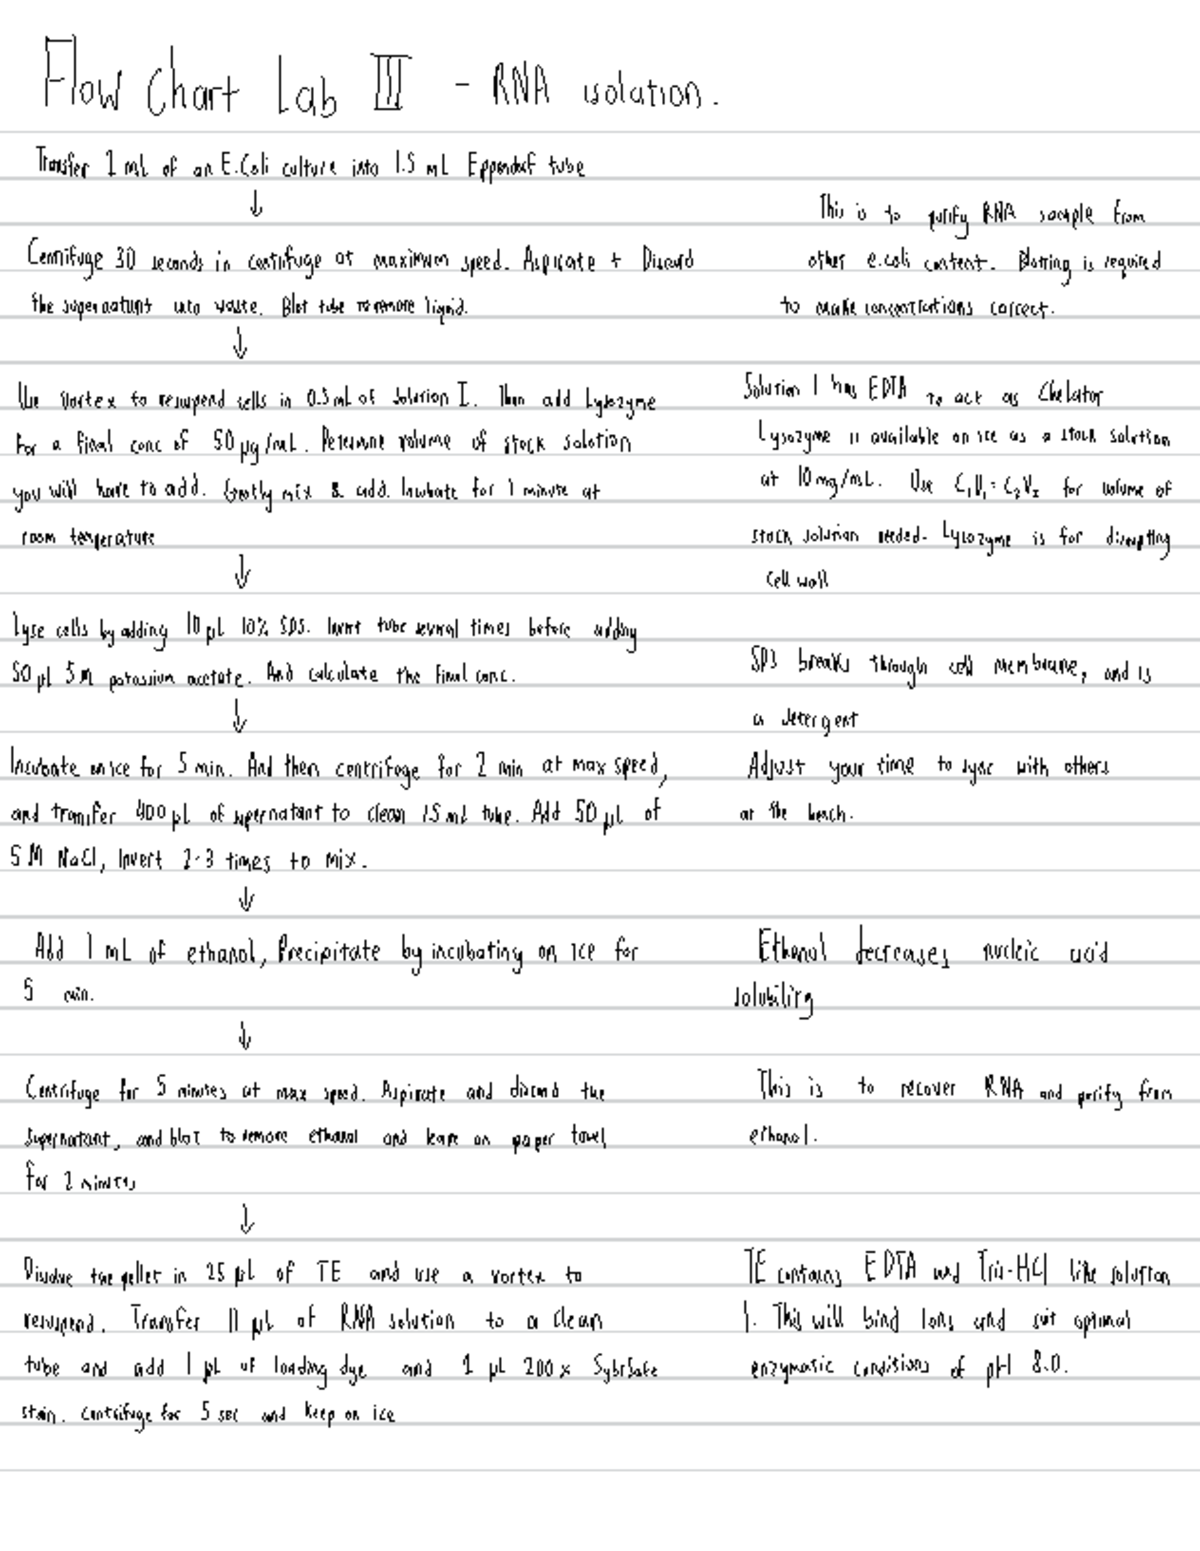 Flow Chart Lab III - RNA isolation.
Transfer 1 mL of an E.Coli culture into 1.5 mL Eppendorf tube
↓
Centrifuge 30 seconds in centrifuge at maximum speed. Aspirate + Discard
the supernatant into waste. Blot tube to remove liquid.
This is to purify RNA sample from
other e.coli content. Blotting is required
to make concentrations correct.
↓
Use vortex to resuspend cells in 0.3 mL of Solution I. Then add Lysozyme
for a final conc of 50 µg/mL. Determine volume of stock solution
you will have to add. Gently mix & add. Incubate for 1 minute at
room temperature
Solution 1 has EDTA to act as Chelator
Lysozyme is available on ice as a stock solution
at 10 mg/mL. Use C₁V₁=C₂V₂ for volume of
stock solution needed. Lysozyme is for disrupting
cell wall
↓
Lyse cells by adding 10 µl 10% SDS. Invert tube several times before adding
50 µl 5M potassium acetate. And calculate the final conc.
SDS breaks through cell membrane, and is
a detergent
↓
Incubate on ice for 5 min. And then centrifuge for 2 min at max speed,
and transfer 400 µl of supernatant to clean 1.5 mL tube. Add 50 µl of
5 M NaCl, Invert 2-3 times to mix.
Adjust your time to sync with others
at the bench.
↓
Add 1 mL of ethanol, Precipitate by incubating on ice for
5 min.
Ethanol decreases nucleic acid
solubility
↓
Centrifuge for 5 minutes at max speed. Aspirate and discard the
supernatant, and blot to remove ethanol and leave on paper towel
for 2 minutes
This is to recover RNA and purify from
ethanol.
↓
Dissolve the pellet in 25 µl of TE and use a vortex to
resuspend. Transfer 11 µl of RNA solution to a clean
tube and add 1 µl of loading dye and 1 µl 200x SybrSafe
stain. Centrifuge for 5 sec and keep on ice
TE contains EDTA and Tris-HCl like solution
1. This will bind Ions and set optimal
enzymatic conditions of pH 8.0.